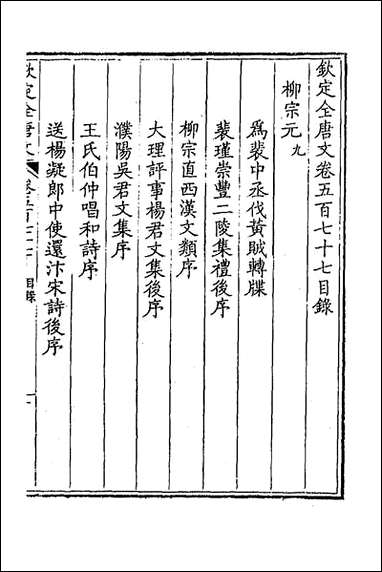 欽定全唐文卷五百七十七目錄
柳宗元九
爲裴中丞伐黃賊轉牒
裴瑾崇豐二陵集禮後序
柳宗直西漢文類序
大理評事楊君文集後序
濮陽吳君文集序
王氏伯仲唱和詩序
送楊凝郎中使還汴宋詩後序
欽定全唐文 卷五百七十七 目錄 一